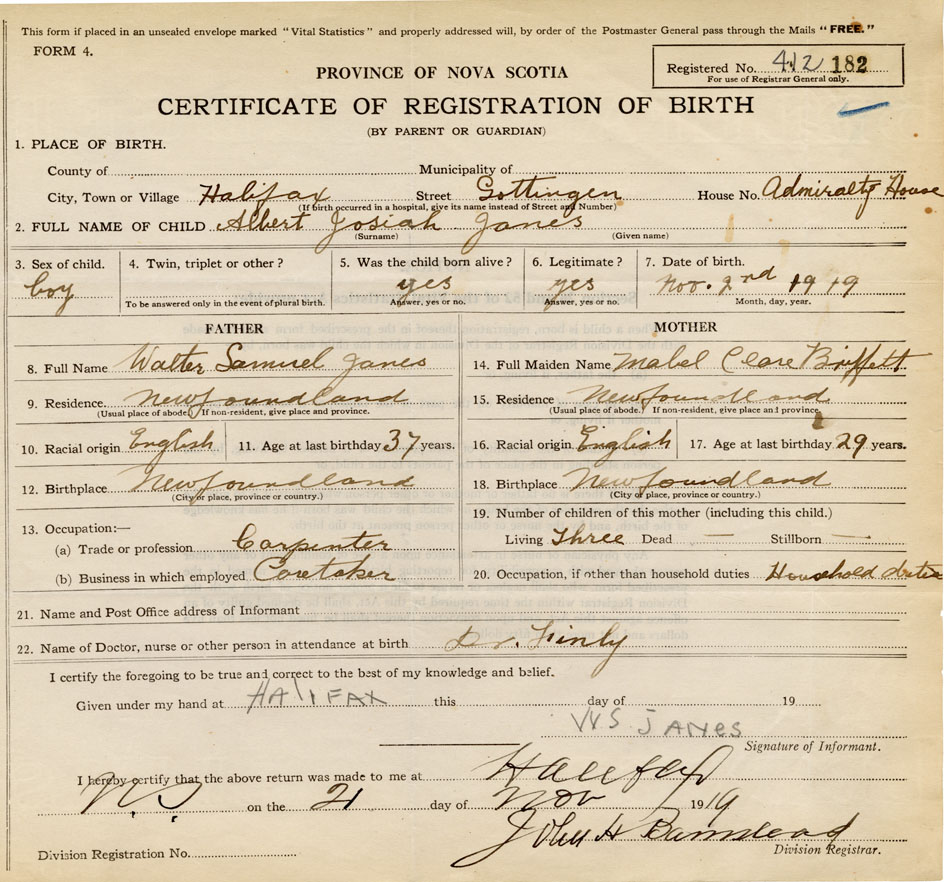 This form if placed in an unsealed envelope marked "Vital Statistics" and properly addressed will, by order of the Postmaster General pass through the Mails "FREE."
FORM 4.
Registered No. 412 182
For use of Registrar General only.
PROVINCE OF NOVA SCOTIA
CERTIFICATE OF REGISTRATION OF BIRTH
(BY PARENT OR GUARDIAN)
1. PLACE OF BIRTH.
County of Municipality of
City, Town or Village Halifax Street Gottingen House No. Admiralty House
(If birth occurred in a hospital, give its name instead of Street and Number)
2. FULL NAME OF CHILD Albert Josiah Janes
(Surname) (Given name)
3. Sex of child. 4. Twin, triplet or other? 5. Was the child born alive? 6. Legitimate? 7. Date of birth.
boy yes yes Nov. 2nd 1919
To be answered only in the event of plural birth. Answer, yes or no. Answer, yes or no. Month, day, year.
FATHER MOTHER
8. Full Name Walter Samuel Janes 14. Full Maiden Name Mabel Clare Briffett
9. Residence. Newfoundland 15. Residence Newfoundland
(Usual place of abode.) If non-resident, give place and province. (Usual place of abode.) If non-resident, give place and province.
10. Racial origin English 11. Age at last birthday 37 years. 16. Racial origin English 17. Age at last birthday 29 years.
12. Birthplace Newfoundland 18. Birthplace Newfoundland
(City or place, province or country.) (City or place, province or country.)
13. Occupation:— 19. Number of children of this mother (including this child.)
(a) Trade or profession Carpenter Living Three Dead — Stillborn —
(b) Business in which employed Caretaker 20. Occupation, if other than household duties Household duties
21. Name and Post Office address of Informant
22. Name of Doctor, nurse or other person in attendance at birth Dr. Finly
I certify the foregoing to be true and correct to the best of my knowledge and belief.
Given under my hand at HALIFAX this day of 19
WS JANES
Signature of Informant.
I hereby certify that the above return was made to me at Halifax
N.S. on the 21 day of Nov 1919
John H Barnstead
Division Registration No. Division Registrar.